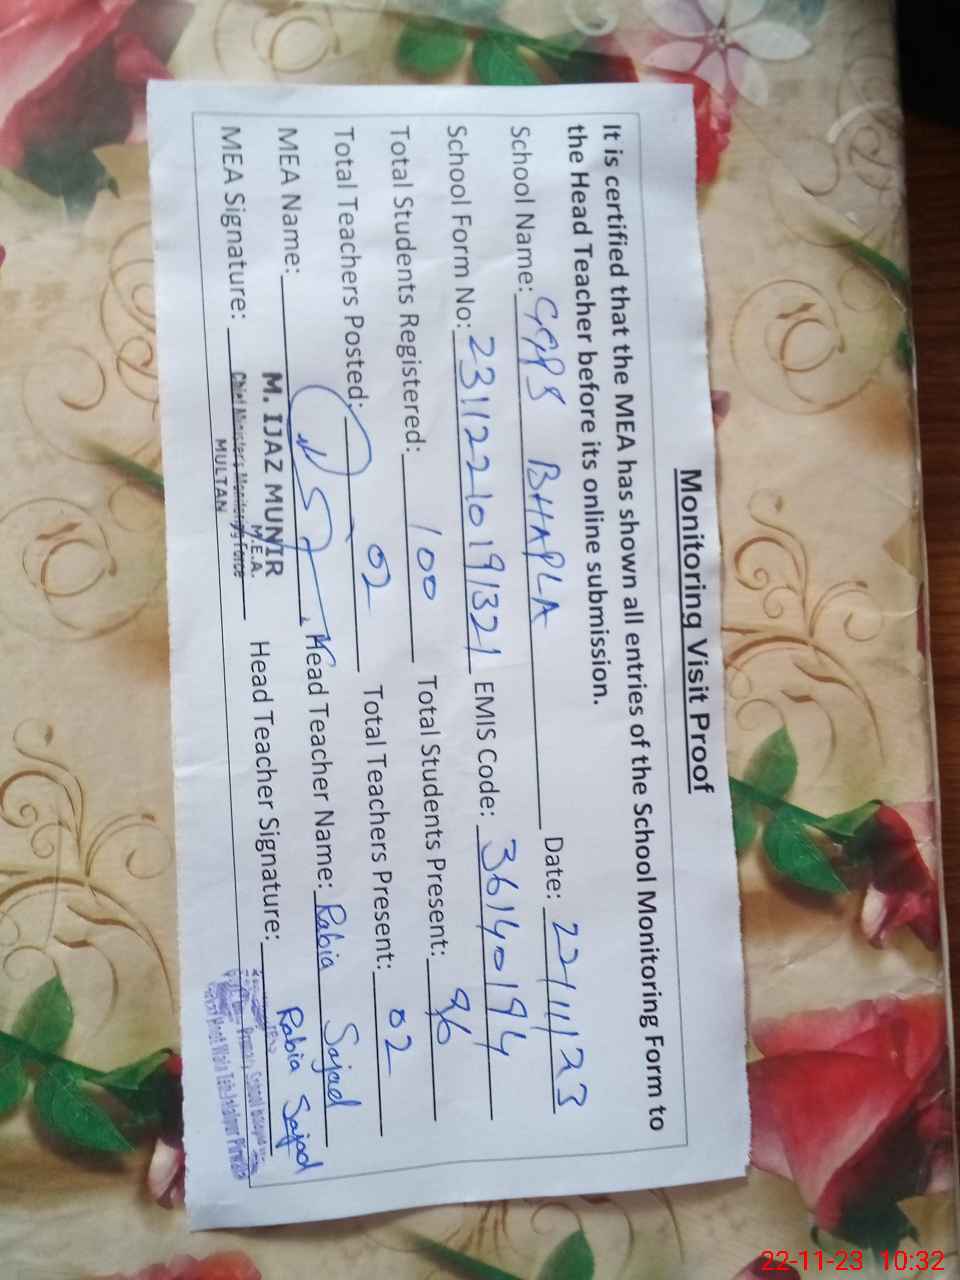 Monitoring Visit Proof
It is certified that the MEA has shown all entries of the School Monitoring Form to
the Head Teacher before its online submission.
School Name: GGPS BHAPLA Date: 22/11/23
School Form No: 23112210191321 EMIS Code: 36140194
Total Students Registered: 100 Total Students Present: 96
Total Teachers Posted: 02 Total Teachers Present: 02
MEA Name: Head Teacher Name: Rabia Sajad
M. IJAZ MUNIR
M.E.A.
MEA Signature: Head Teacher Signature: Rabia Sajad
Chief Minister's Monitoring Force
MULTAN
Primary School
22-11-23 10:32